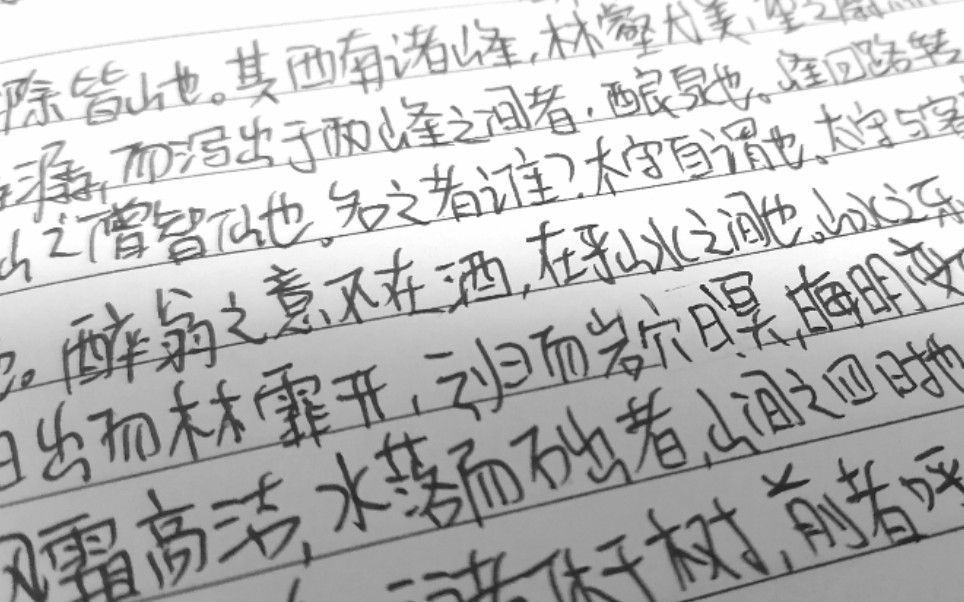 除皆山也。其西有诸峰,林壑尤美,望之蔚
潺潺,而泻出于两峰之间者,酿泉也。峰回路转
山之僧智仙也。名之者谁?太守自谓也。太守与客
也。醉翁之意不在酒,在乎山水之间也。山水之乐
日出而林霏开,云归而岩穴暝,晦明变
风霜高洁,水落而石出者,山间之四时也
者休于树,前者呼